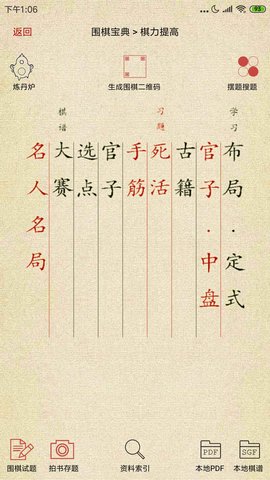 下午1:06
93
返回
围棋宝典 > 棋力提高
炼丹炉
生成围棋二维码
摆题搜题
学习
布局.定式
官子.中盘
古籍
习题
死活
手筋
官子
选点
棋谱
大赛
名人名局
围棋试题
拍书存题
资料索引
PDF
本地PDF
SGF
本地棋谱